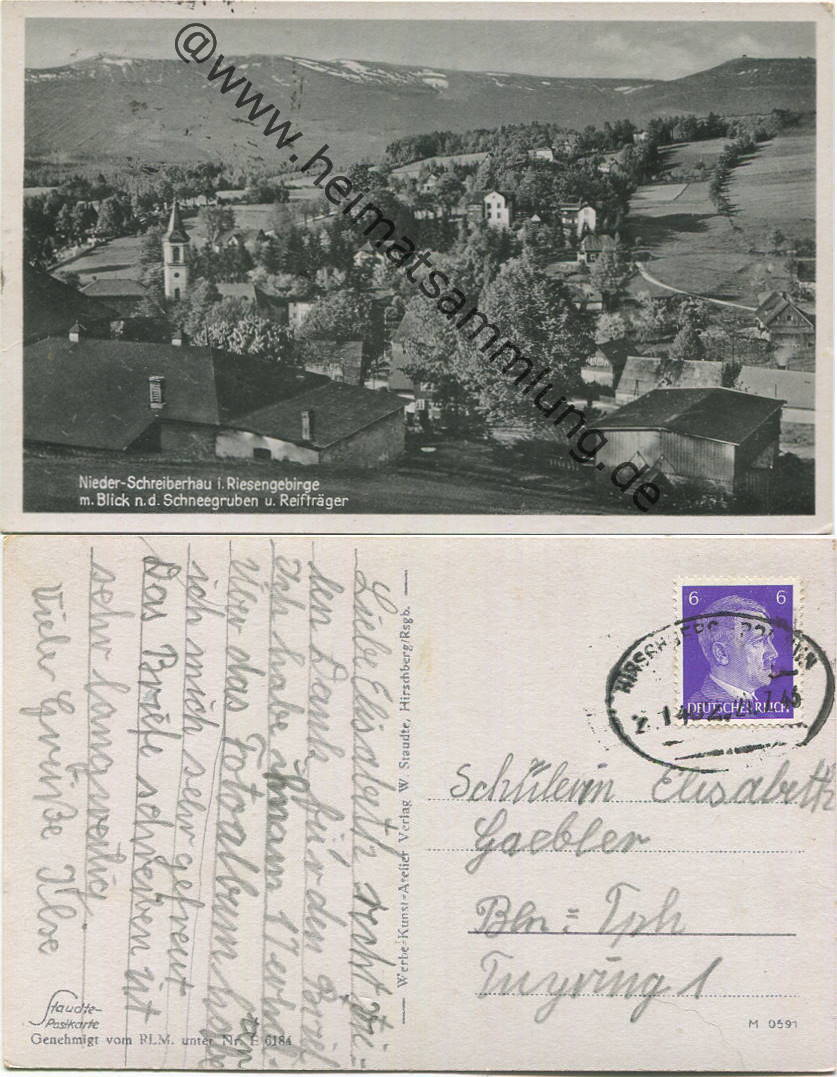 @www.heimatsammlung.de
Nieder-Schreiberhau i. Riesengebirge
m. Blick n. d. Schneegruben u. Reifträger
Liebe Elisabeth recht vie-
len Dank für den Brief
Ich habe ihn am 17 erhal-
ten
Über das Fotoalbum habe
ich mich sehr gefreut
Das Briefe schreiben ist
sehr langweilig.
Viele Grüße Ilse
Werbe-Kunst-Atelier Verlag W. Staudte, Hirschberg/Rsgb.
Staudte-
Postkarte
Genehmigt vom RLM. unter Nr. E 6184
6 6
DEUTSCHES REICH
Schülerin Elisabeth
Gaebler
Bln.: Tph
1
M 0591